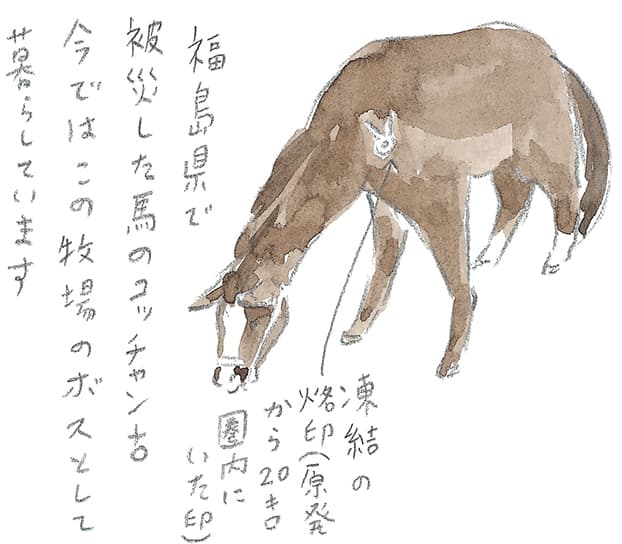 福島県で
被災した馬のコッチャン♂
今ではこの牧場のボスとして
暮らしています
凍結の
烙印(原発
から20キロ
圏内に
いた印)